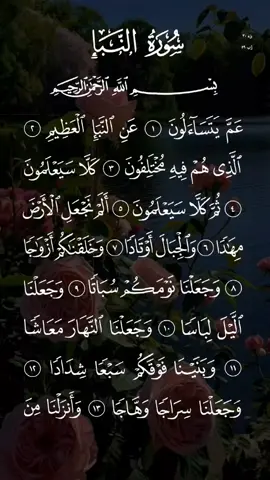 سُورَةُ النَّبَإِ
بِسْمِ اللَّهِ الرَّحْمَٰنِ الرَّحِيمِ
عَمَّ يَتَسَآءَلُونَ ١ عَنِ النَّبَإِ الْعَظِيمِ ٢
الَّذِي هُمْ فِيهِ مُخْتَلِفُونَ ٣ كَلَّا سَيَعْلَمُونَ
٤ ثُمَّ كَلَّا سَيَعْلَمُونَ ٥ أَلَمْ نَجْعَلِ الْأَرْضَ
مِهَٰدًا ٦ وَالْجِبَالَ أَوْتَادًا ٧ وَخَلَقْنَٰكُمْ أَزْوَٰجًا
٨ وَجَعَلْنَا نَوْمَكُمْ سُبَاتًا ٩ وَجَعَلْنَا
الَّيْلَ لِبَاسًا ١٠ وَجَعَلْنَا النَّهَارَ مَعَاشًا
١١ وَبَنَيْنَا فَوْقَكُمْ سَبْعًا شِدَادًا ١٢
وَجَعَلْنَا سِرَاجًا وَهَّاجًا ١٣ وَأَنزَلْنَا مِنَ